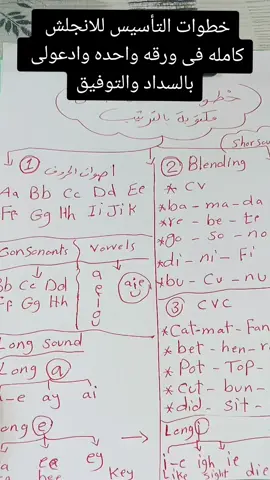 خطوات التأسيس للانجلش
كامله فى ورقه واحده وادعولى
بالسداد والتوفيق
مكتوبة بالترتيب
① أصوات الحروف
Aa Bb Cc Dd Ee
Ff Gg Hh Ii Jj K
Consonants
Vowels
Bb Cc Dd
Ff Gg Hh
a
e
i
o
u
Long sound
Long a
a-e ay ai
Long e
ee
ey
Key
② Blending
* CV
* ba - ma - da
* re - be - te
* go - so - no
* di - ni - Fi
* bu - Cu - nu
③ CVC
* Cat - mat - Fan
* bet - hen - r
* Pot - Top -
* Cut - bun -
* did - sit -
Long i
i-e igh ie
Like sight die